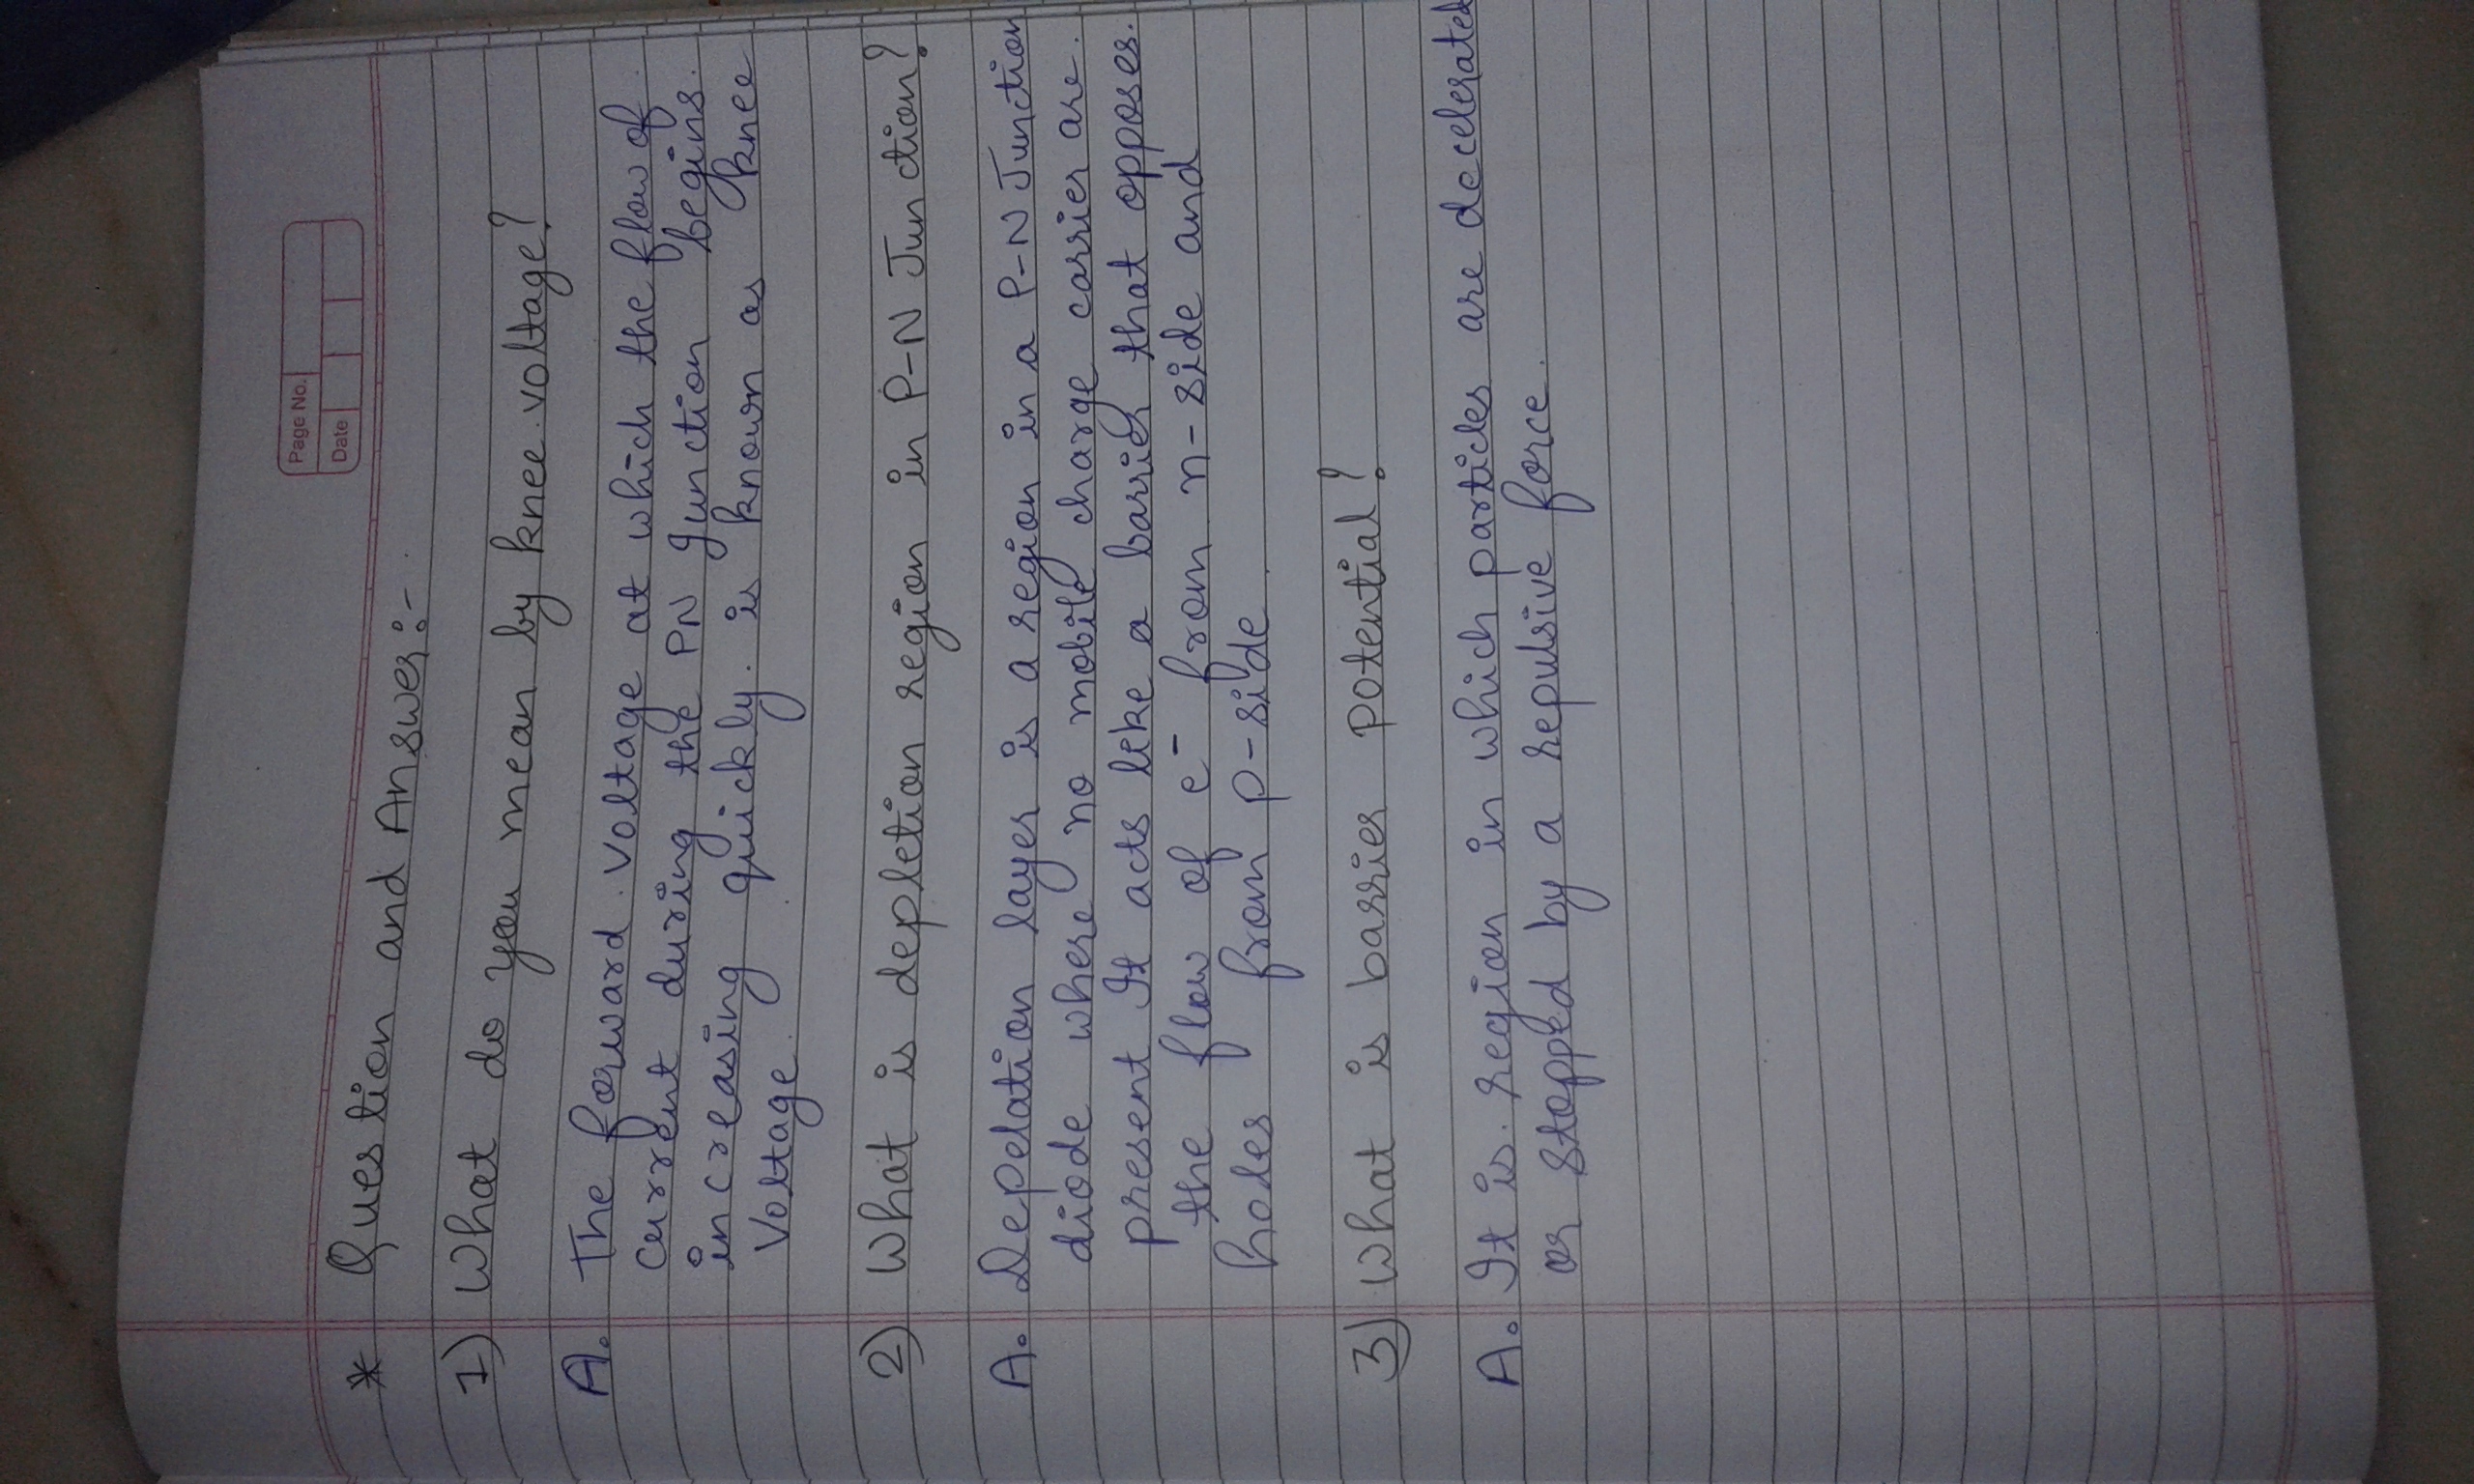 Page No.
Date
* Question and Answer:-
1) What do you mean by knee voltage?
A. The forward voltage at which the flow of
current during the PN junction begins
increasing quickly. is known as knee
Voltage.
2) What is depletion region in P-N Junction?
A. Depelation layer is a region in a P-N Junction
diode where no mobile charge carrier are.
present It acts like a barrier that opposes.
the flow of e⁻ from n-side and
holes from p-side.
3) What is barrier potential?
A. It is. region in which particles are decelerated
or stopped by a repulsive force.